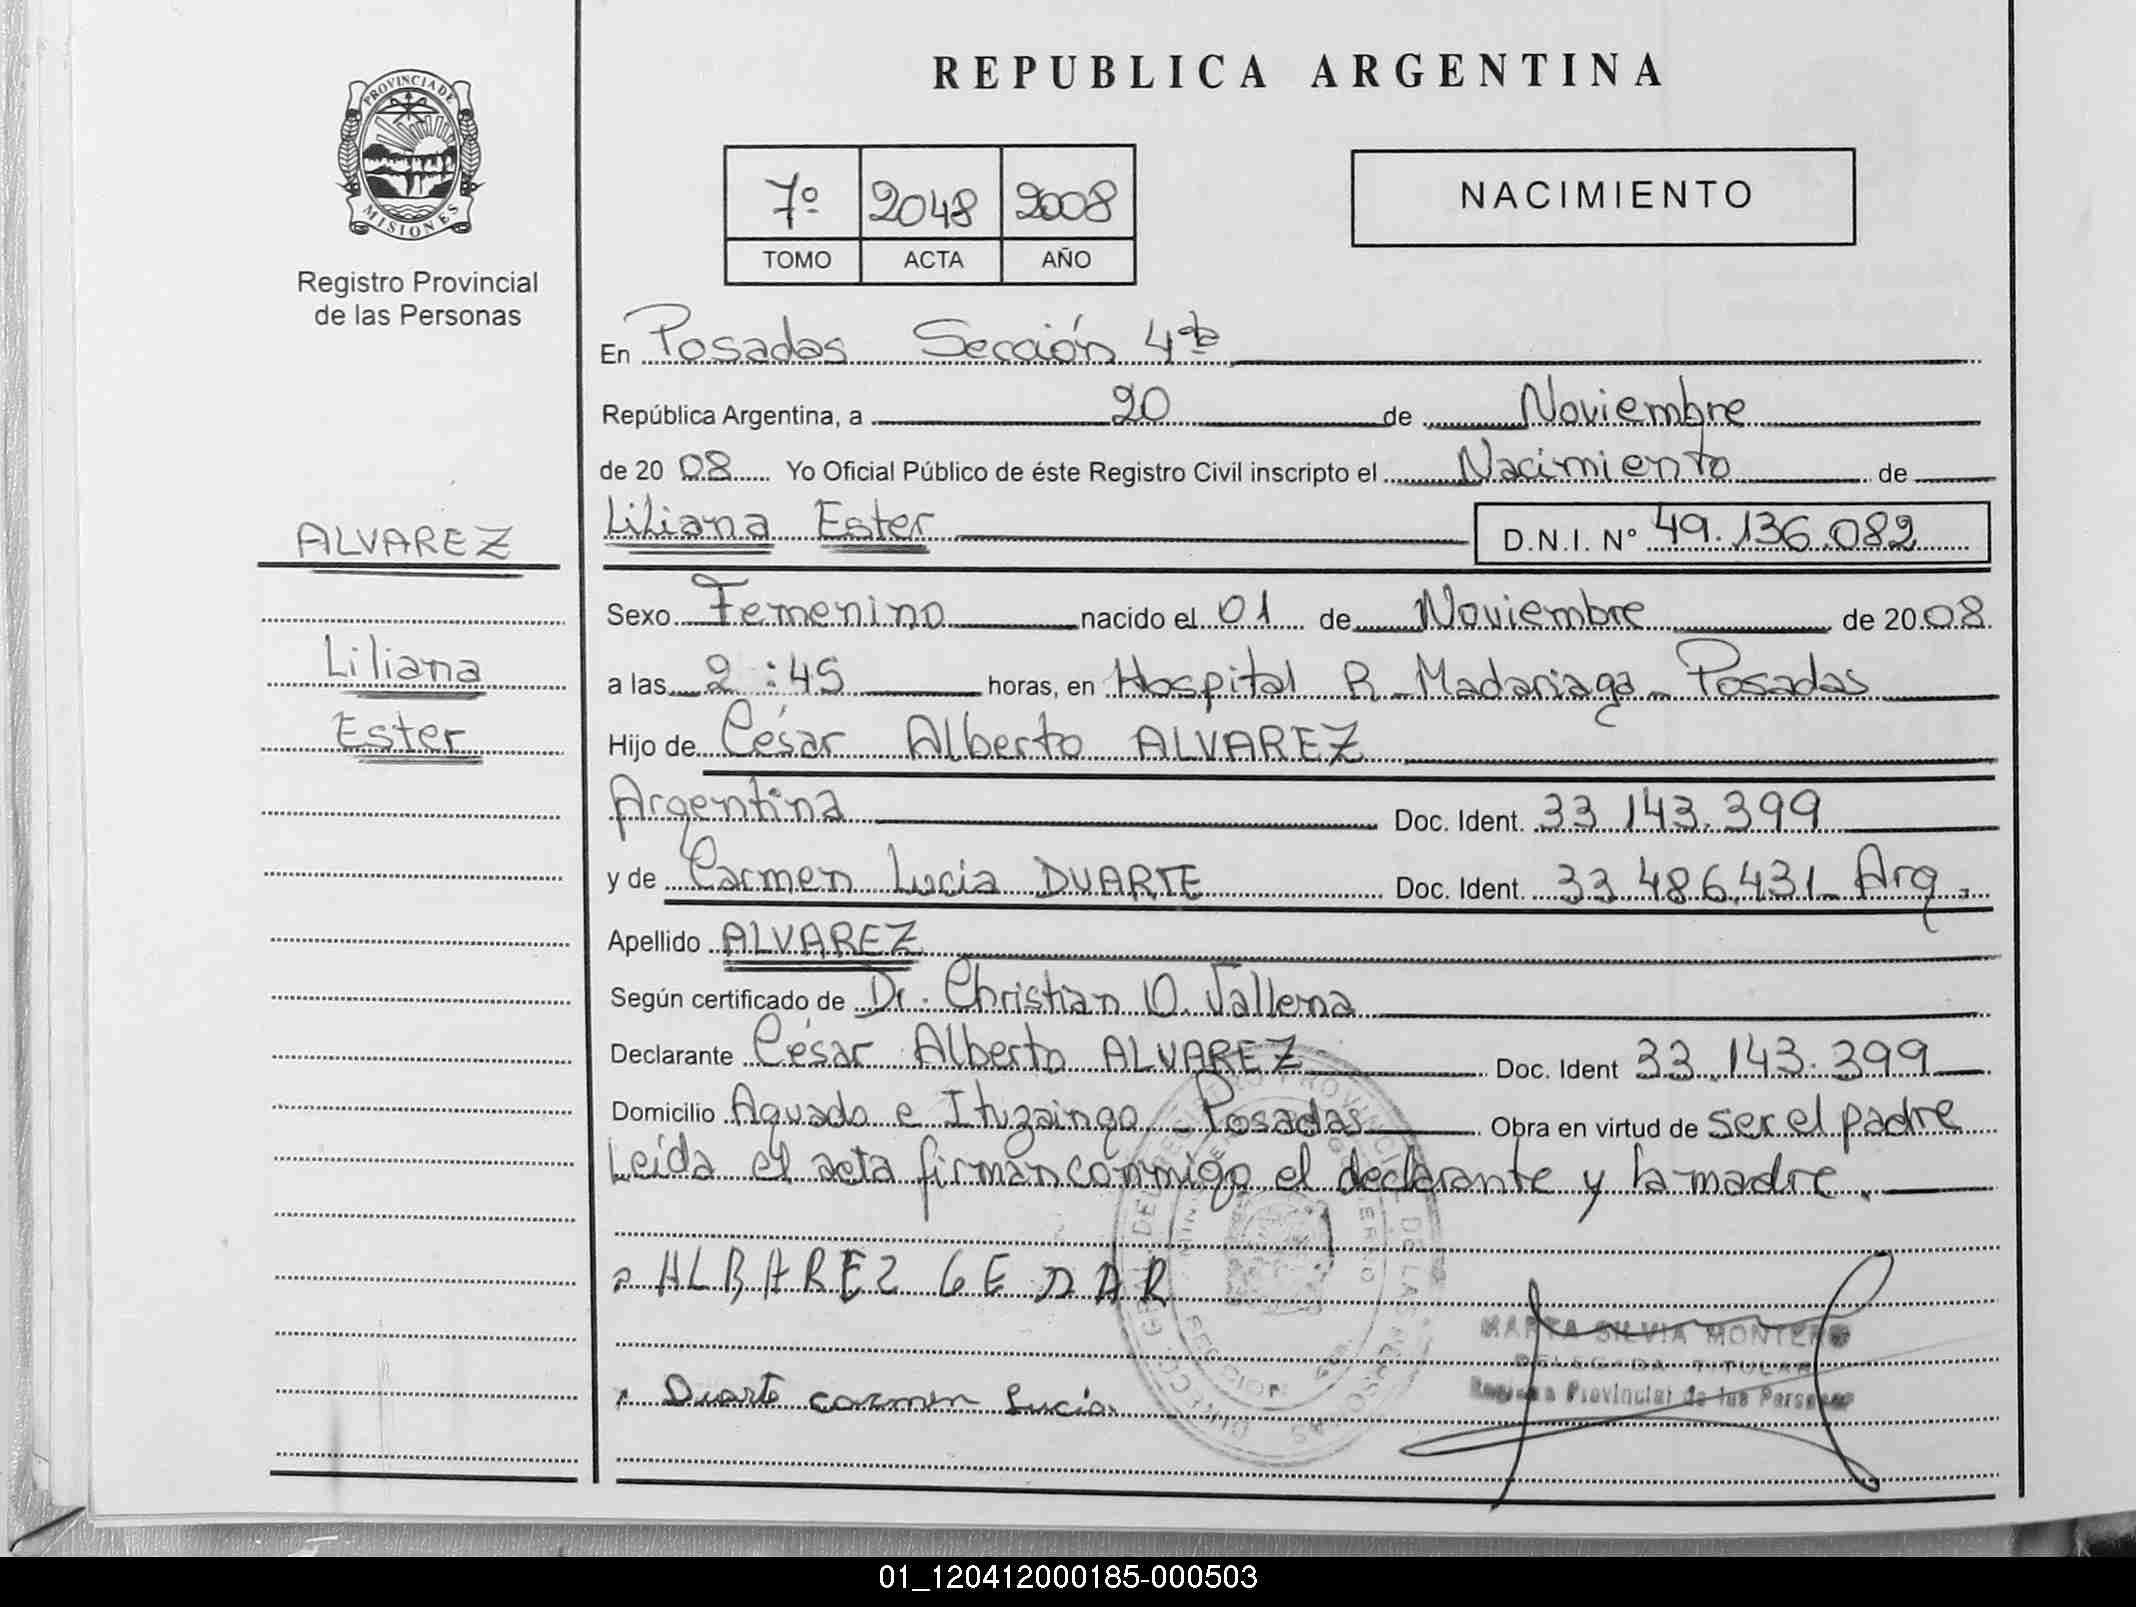 REPUBLICA ARGENTINA
PROVINCIA DE
MISIONES
Registro Provincial
de las Personas
7º 2048 2008
TOMO ACTA AÑO
NACIMIENTO
En Posadas Sección 4ta
República Argentina, a 20 de Noviembre
de 20 08 Yo Oficial Público de éste Registro Civil inscripto el Nacimiento de
ALVAREZ
Liliana
Ester
Liliana Ester D.N.I. N° 49.136.082
Sexo Femenino nacido el 01 de Noviembre de 20 08
a las 2:45 horas, en Hospital R. Madariaga - Posadas
Hijo de César Alberto ALVAREZ
Argentina Doc. Ident. 33 143.399
y de Carmen Lucia DUARTE Doc. Ident. 33 486.431 - Arg.
Apellido ALVAREZ
Según certificado de Dr. Christian O.
Declarante César Alberto ALVAREZ Doc. Ident 33.143.399
Domicilio Aguado e Ituzaingo - Posadas Obra en virtud de ser el padre
Leída el acta firman conmigo el declarante y la madre.
ALBAREZ
Duarte carmen Lucia
MARTA SILVIA MONTERO
DELEGADA TITULAR
Registro Provincial de las Personas
01_120412000185-000503